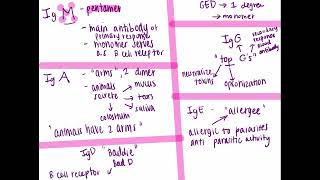 IgM - pentamer
- main antibody of primary response
- monomer serves as B cell receptor
GED → 1 degree
→ monomer
IgG
secondary response
blood antibody
"top G's"
neutralize toxins
opsonization
IgA - "arms", 2 dimer
- animals → mucus
secrete → tears
→ saliva
colostrum
"animals have 2 arms"
IgE - "allergee"
allergic to parasites
anti parasitic activity
IgD "Baddie"
Bad D
B cell receptor